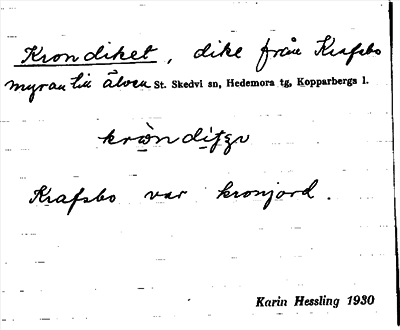 Krondiket, dike från Krafsbo
myran till älven St. Skedvi sn, Hedemora tg, Kopparbergs l.
Krafsbo var kronjord.
Karin Hessling 1930